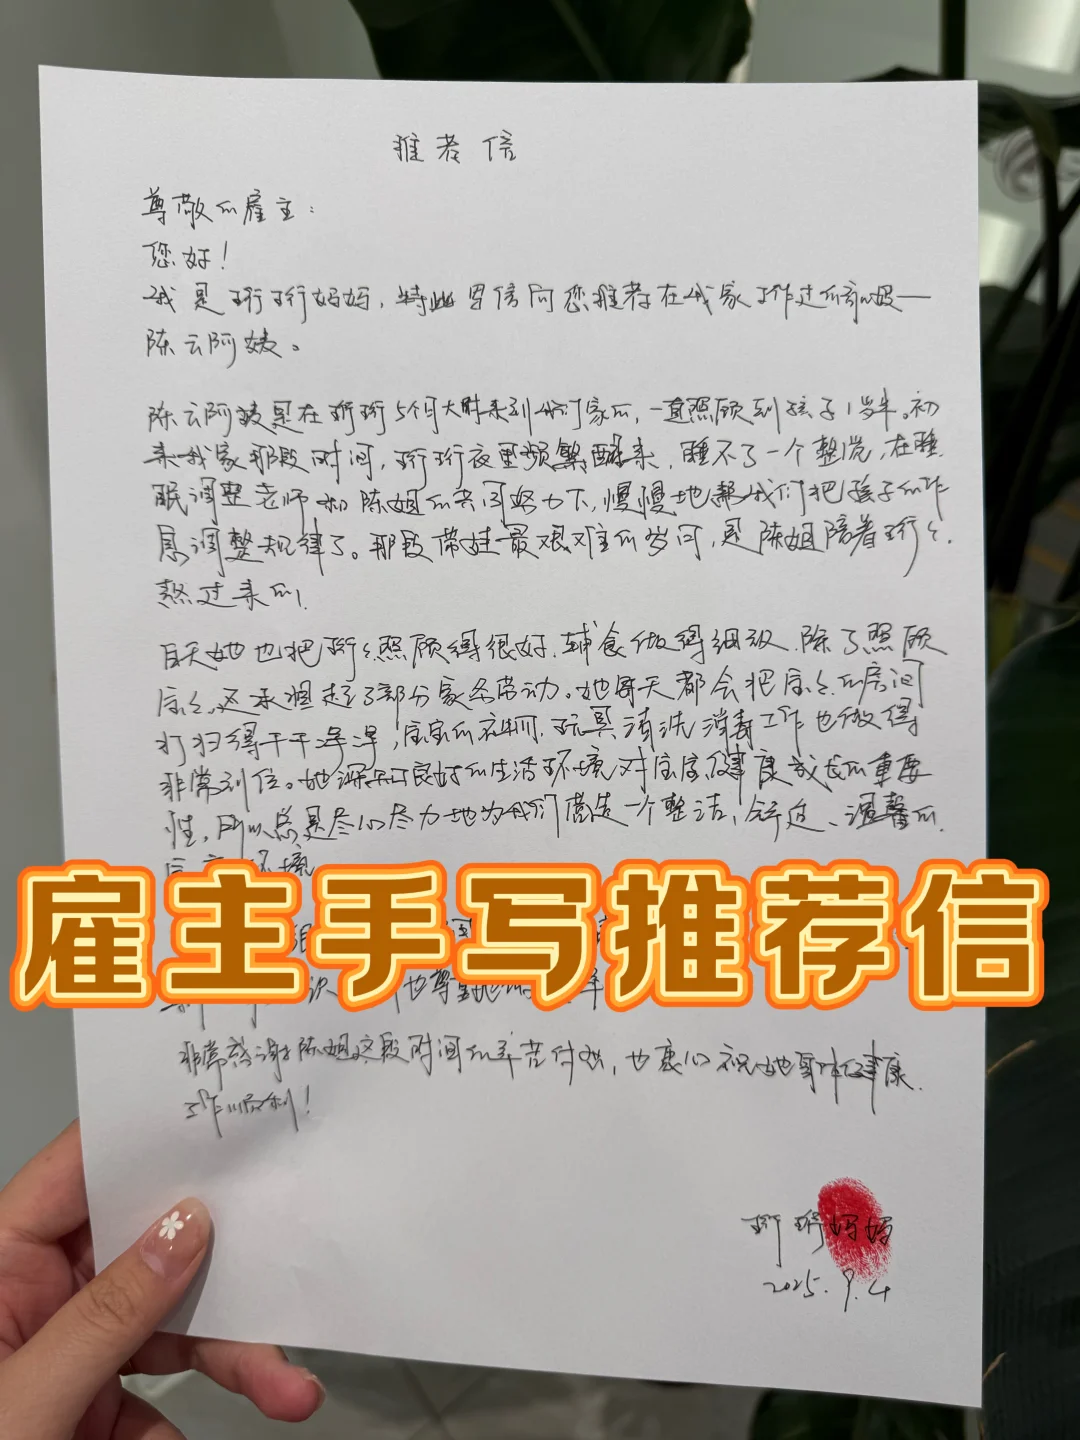 推荐信
尊敬的雇主：
您好！
我是珩珩妈妈，特此写信向您推荐在我家工作过的育儿嫂一
陈云阿姨。
陈云阿姨是在珩珩5个月大时来到我们家的，一直照顾到孩子1岁半。初
来我家那段时间，珩珩夜里频繁醒来，睡不了一个整觉，在睡
眠调整老师和陈姐的共同努力下，慢慢地帮我们把孩子的作
息调整规律了。那段带娃最艰难的岁月，是陈姐陪着珩々
熬过来的，
白天她也把珩々照顾得很好，辅食做得细致，除了照顾
宝々，还承担起了部分家务劳动。她每天都会把宝々的房间
打扫得干干净净，宝宝的衣物、玩具清洗消毒工作也做得
非常到位。她深知良好的生活环境对宝宝健康成长的重要
性，所以总是尽心尽力地为我们营造一个整洁、舒适、温馨的
环境
雇主手写推荐信
也尊重她的
非常感谢陈姐这段时间的辛苦付出，也衷心祝她身体健康，
工作顺利！
珩珩妈妈
2025.9.4